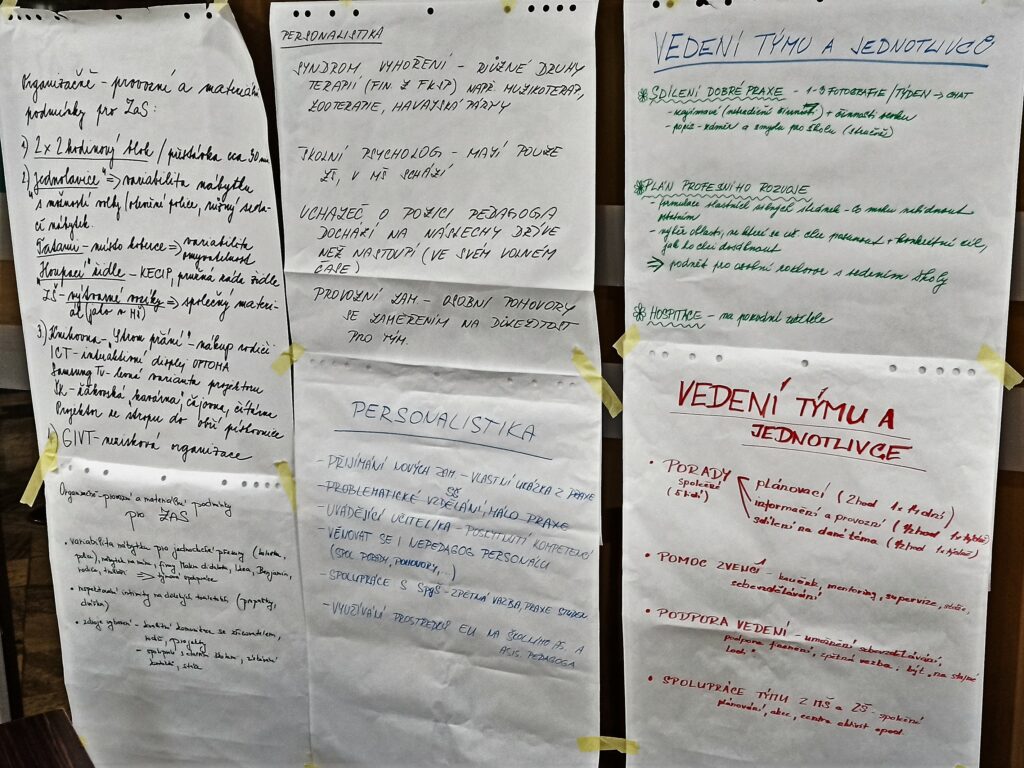 Organizačně - provozní a materiální
podmínky pro ZaS:
1) 2 x 2 hodinový blok / přestávka cca 30 min
2) "Jednolavice" => variabilita nábytku
s možností volby (otevřené police, různý seda-
cí nábytek.
Tatami - místo koberce => variabilita
omyvatelnost
"Houpací" židle - KECIP, pružná záda židle
ZŠ - výtvarné vozíky => společný materi-
ál (jako v MŠ)
3) Knihovna - "Strom přání" - nákup rodiči
ICT - interaktivní displej OPTOMA
Samsung TV - levná varianta projektoru
ŽK - žákovská kavárna, čajovna, čítárna
Projektor ze stropu do obří pískovnice
GIVT - nezisková organizace
Organizační - provozní a materiální podmínky
pro ZAS
• variabilita nábytku pro jednotlivé prvky
firmy Makra didakta,
• respektování intimity na dětských toaletách (přepážky,
dvířka)
• zdroje vybavení - kvalitní komunikace se zřizovatelem,
rodiče, projekty
PERSONALISTIKA
SYNDROM VYHOŘENÍ - RŮZNÉ DRUHY
TERAPIÍ (FIN. Z FKSP) NAPŘ. MUZIKOTERAP,
ZOOTERAPIE, HAVAJSKÁ PÁRTY
ŠKOLNÍ PSYCHOLOG - MAJÍ POUZE
ZŠ, V MŠ SCHÁZÍ
UCHAZEČ O POZICI PEDAGOGA
DOCHÁZÍ NA NÁSLECHY DŘÍVE
NEŽ NASTOUPÍ (VE SVÉM VOLNÉM
ČASE)
PROVOZNÍ ZAM. - OSOBNÍ POHOVORY
SE ZAMĚŘENÍM NA DŮLEŽITOST
PRO TÝM.
PERSONALISTIKA
- PŘIJÍMÁNÍ NOVÝCH ZAM. - VLASTNÍ UKÁZKA Z PRAXE
- PROBLEMATICKÉ SŠ VZDĚLÁNÍ, MÁLO PRAXE
- UVÁDĚJÍCÍ UČITELKA - POSKYTNUTÍ KOMPETENCÍ
- VĚNOVAT SE I NEPEDAGOG PERSONÁLU
(SPOL. PORADY, POHOVORY,...)
- SPOLUPRÁCE S SPgŠ - ZPĚTNÁ VAZBA, PRAXE STUDEN.
- VYUŽÍVÁNÍ PROSTŘEDKŮ EU NA ŠKOLNÍHO AS. A
ASIS. PEDAGOGA
VEDENÍ TÝMU A JEDNOTLIVCŮ
SDÍLENÍ DOBRÉ PRAXE - 1-3 FOTOGRAFIE/TÝDEN -> CHAT
- zajímavá (netradiční činnost) + činnosti bloku
- popis - záměr a smysl pro školu (stručně)
PLÁN PROFESNÍHO ROZVOJE
- formulace vlastních silných stránek - co mohu nabídnout
ostatním
- výběr oblasti, ve které se uč. chce posunout + konkrétní cíl,
jak ho chci dosáhnout
=> podnět pro osobní rozhovor s vedením školy
HOSPITACE - na požádání učitele
VEDENÍ TÝMU A
JEDNOTLIVCE
• PORADY
společné
(5 lidí)
plánovací (2 hod 1x 14 dní)
informační a provozní (1/2 hod 1x týdně)
sdílení na dané téma (1/2 hod 1x týdně)
• POMOC ZVENČÍ - koučink, mentoring, supervize, stáže,
sebevzdělávání
• PODPORA VEDENÍ - umožnění sebevzdělávání,
podpora finanční, zpětná vazba, být "na stejné
lodi"
• SPOLUPRÁCE TÝMU Z MŠ a ZŠ - společné
plánování, akce, centra aktivit apod.